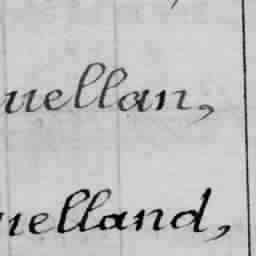 uellan,
uelland,